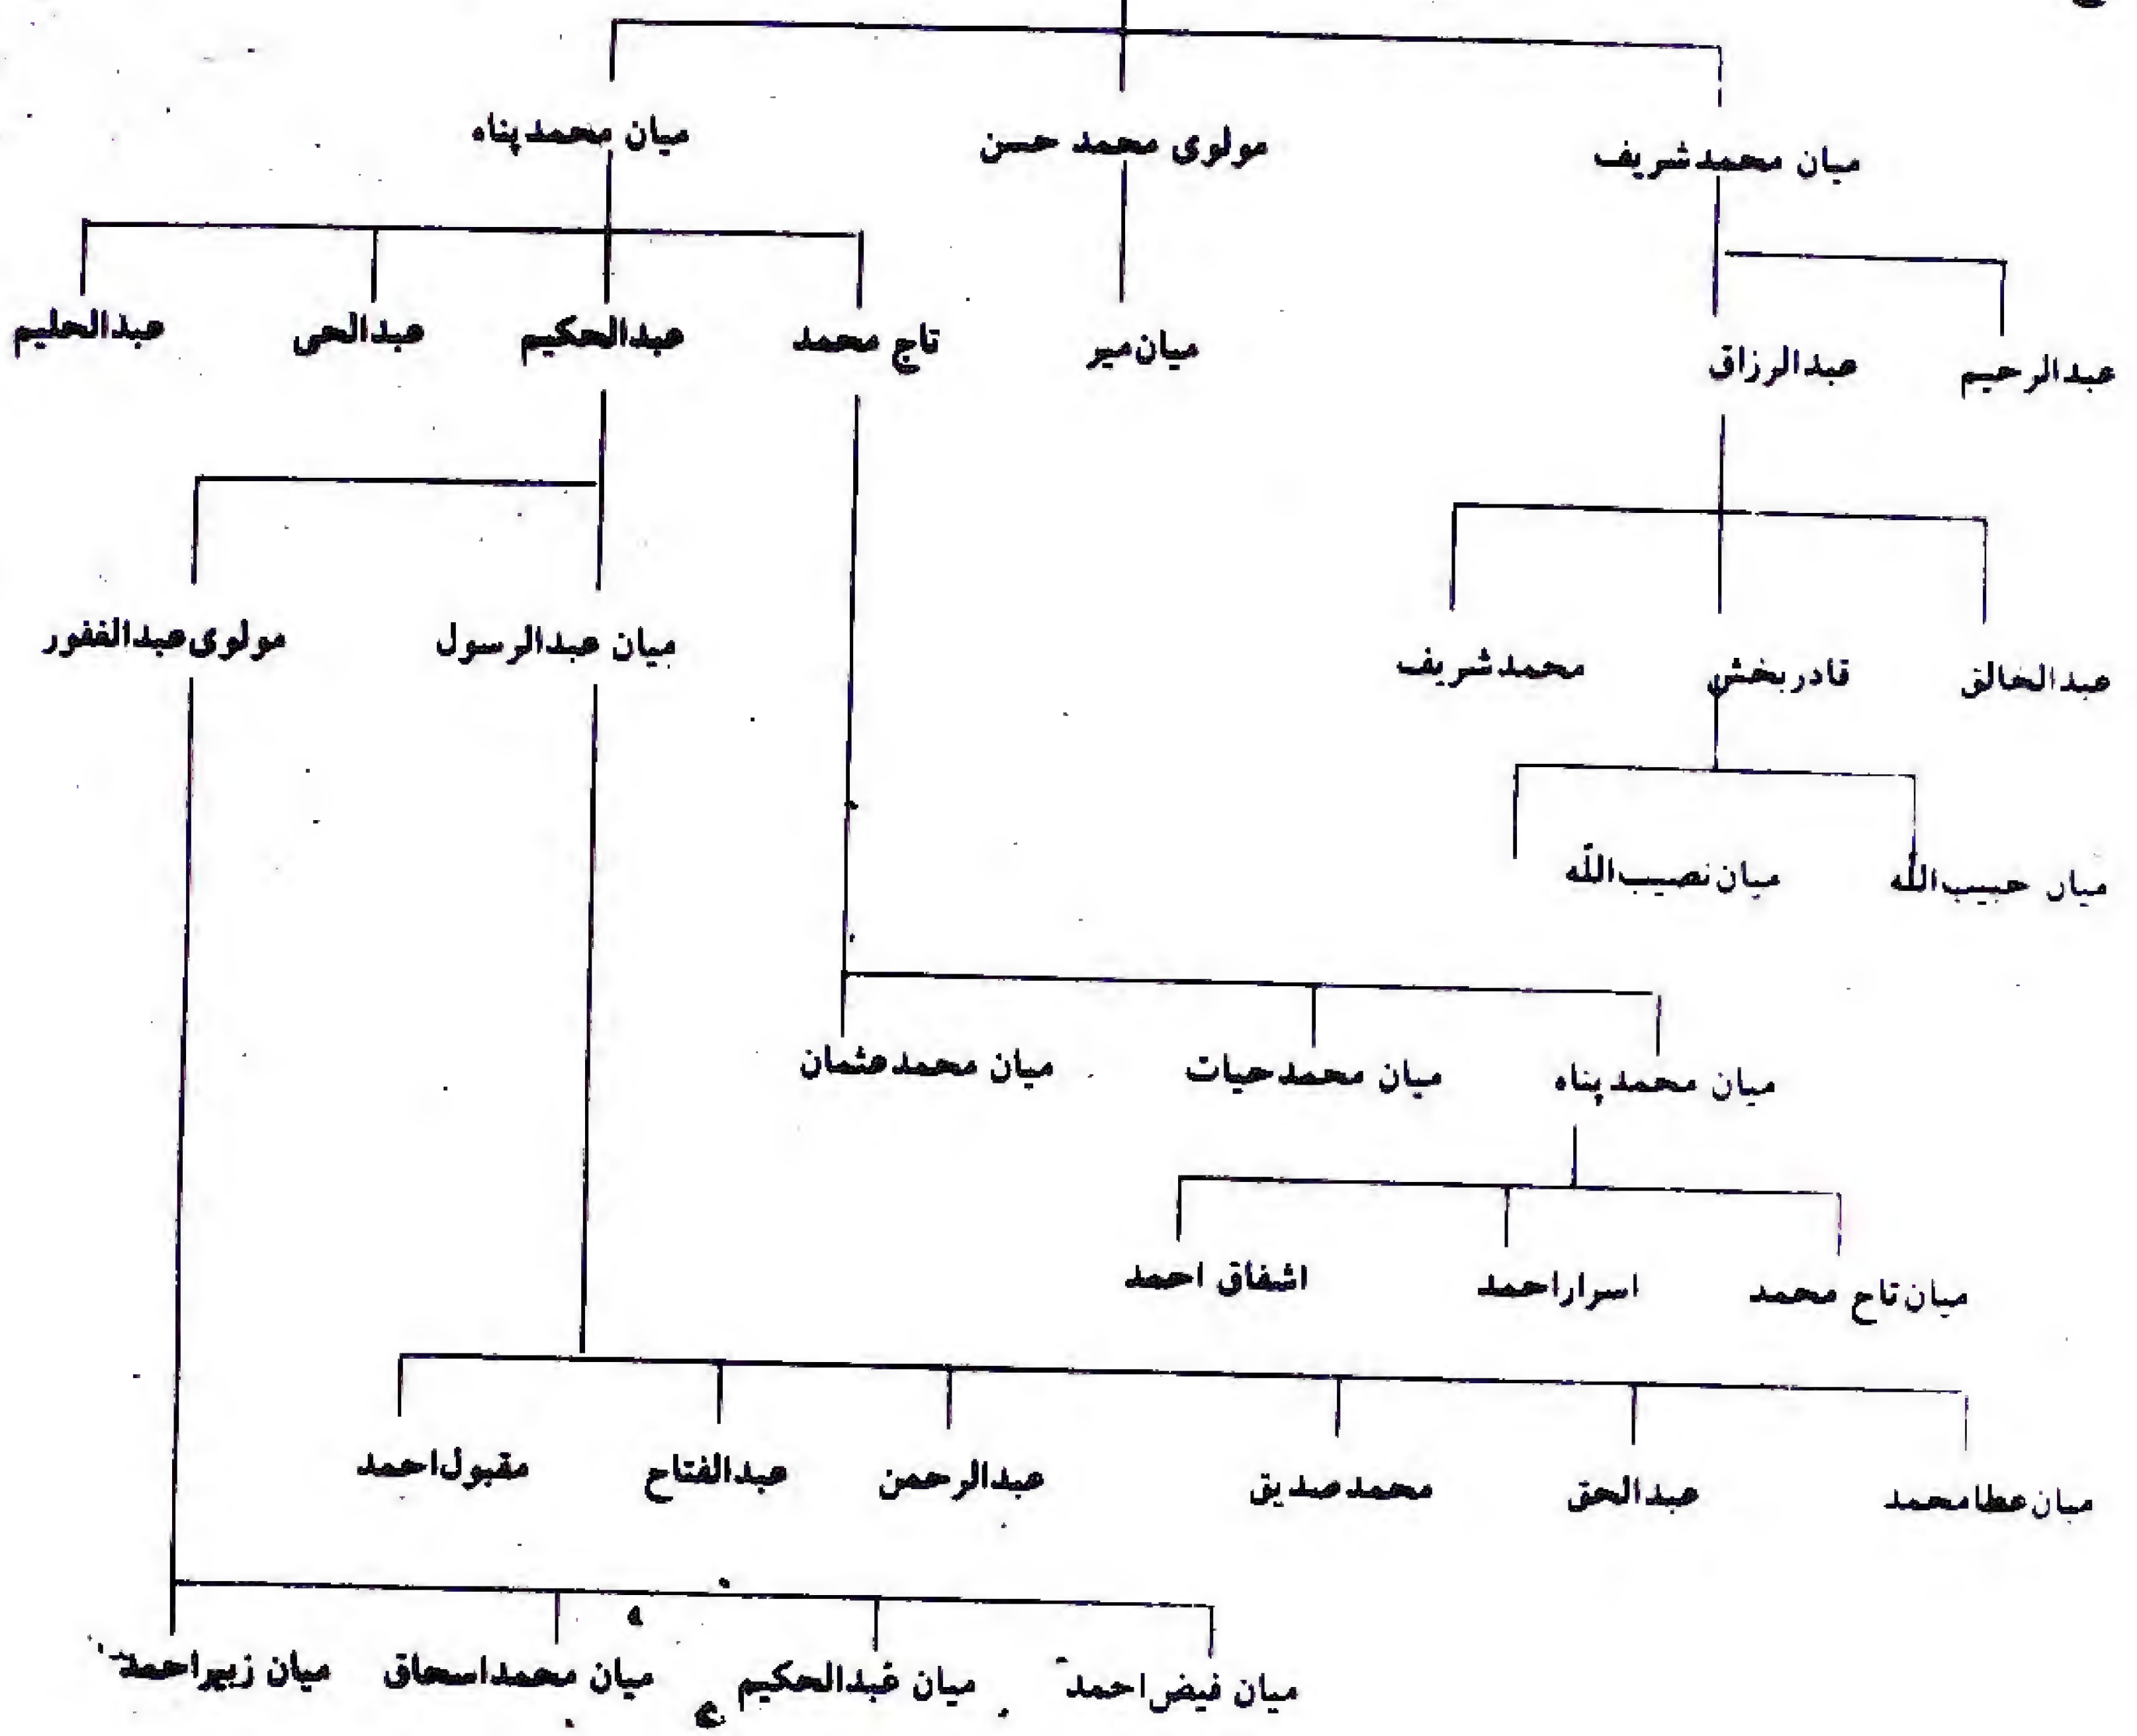 میان محمد شریف مولوی محمد حسن میان محمد پناه
عبدالرحیم عبدالرزاق میان میر تاج محمد عبدالحکیم عبدالحی عبدالحلیم
عبدالخالق قادر بخش محمد شریف میان عبدالرسول مولوی عبدالغفور
میاں حبیب الله میان نصیب الله
میان محمد پناه میان محمد حیات میان محمد عثمان
میان تاج محمد اسرار احمد اشفاق احمد
میان عطا محمد عبدالحق محمد صدیق عبدالرحمن عبدالفتاح مقبول احمد
میان فیض احمد میان عبدالحکیم میان محمد اسحاق میان زبیر احمد